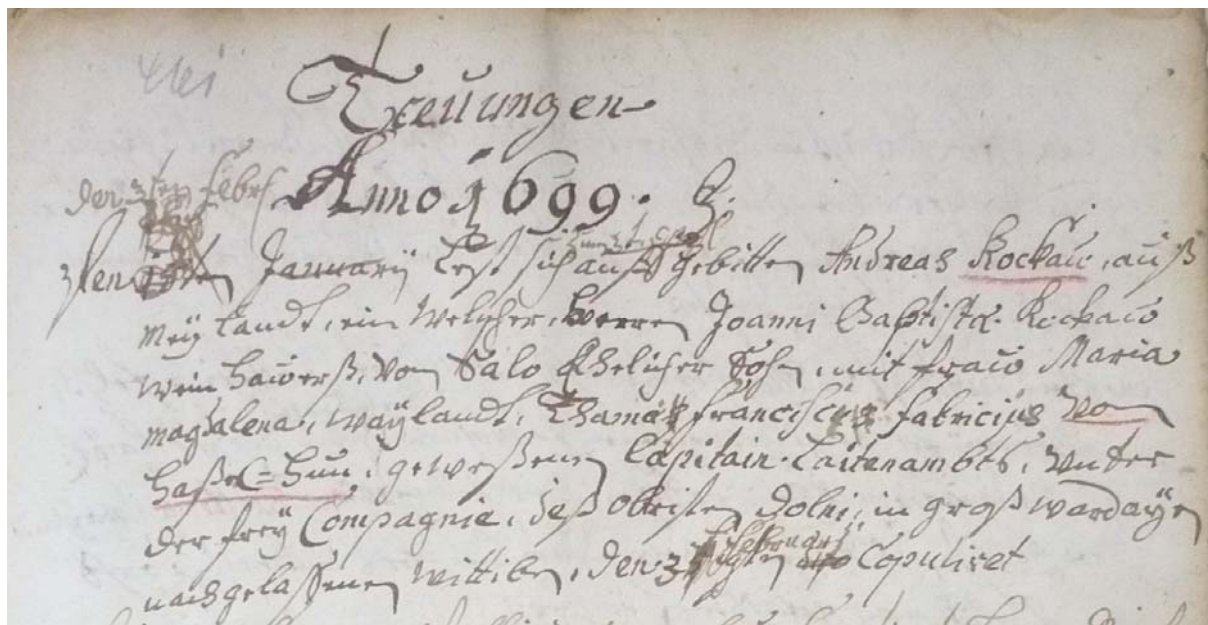 Treuungen
Anno 1699.
den 3ten Febr
Januarij Lest sich auff gebitten Andreas Rockaw, auß
Meÿlandt, ein Welscher, Herren Joanni Baptista Rockaw
Wein Hawerß, Von Salo Ehelicher Sohn, mit fraw Maria
Magdalena, Waÿlandt, Thamas Franciscus Fabricius Von
Haßel=Hun, geweßenen Capitain-Laitenambts, Vnter
der freÿ Compagnie, deß obristen in großwardaÿn
nachgelaßenen Wittiben, den 3 Februarj Copuliret